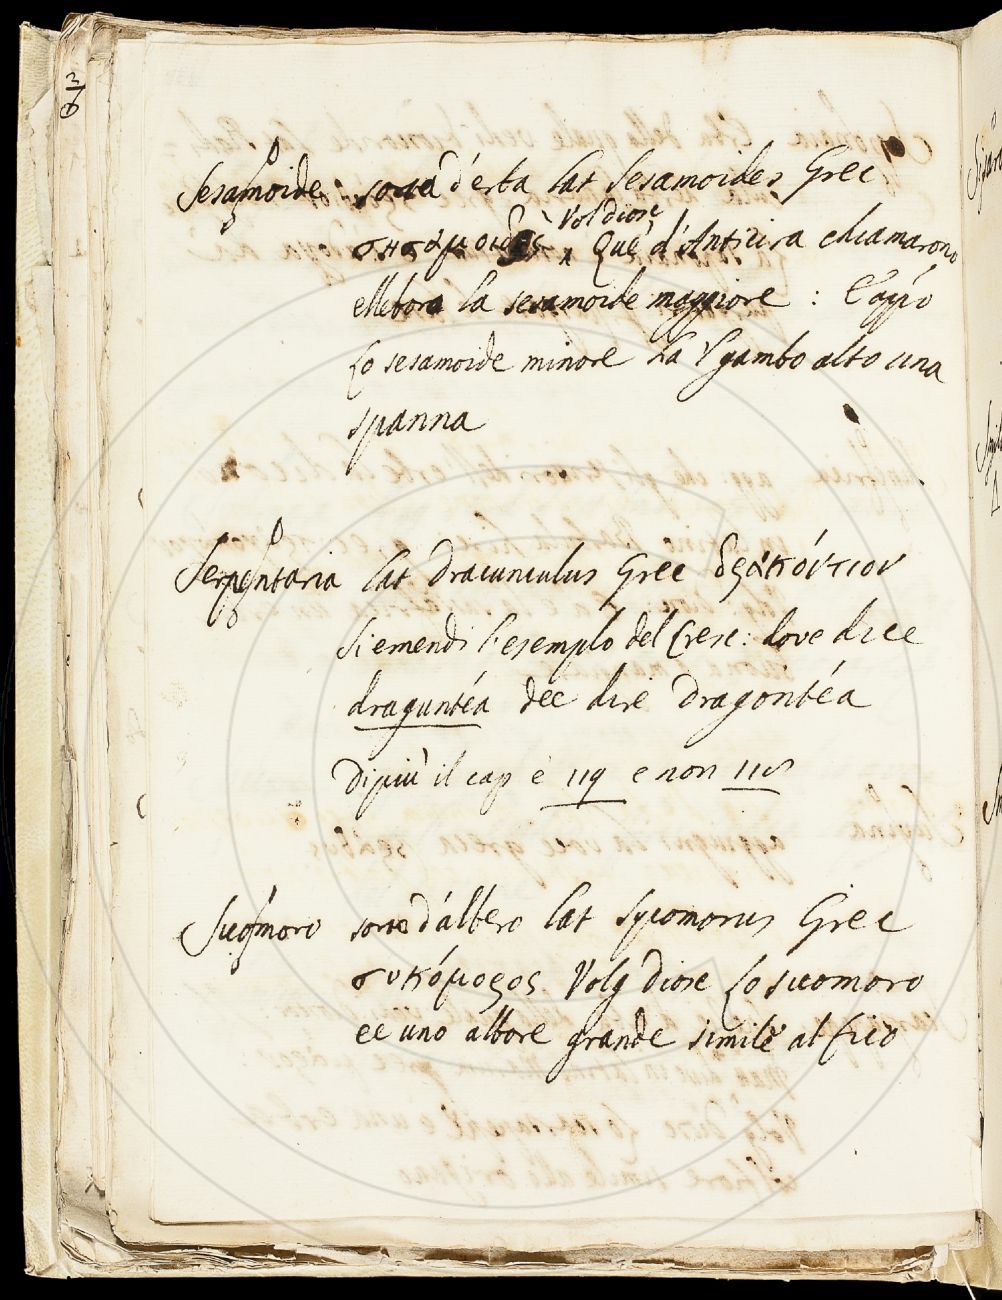 Sesamoide sorta d'erba Lat Sesamoides Grec
σησαμοιδὲς Vol Diosc Que d'Anticira chiamarono
ellebora la sesamoide maggiore : E app͂o
Lo sesamoide minore ha 'l gambo alto una
spanna
Serpentaria Lat Dracunculus Grec δρακόντιον
Si emendi l'esemplo del Cresc: dove dice
draguntéa dee dire Dragontéa
Dipiù il cap è 119 e non 118
Sicomoro sorta d'albero Lat Sycomorus Grec
συκόμορος Volg Diosc Lo sicomoro
ee uno albore grande simile al fico